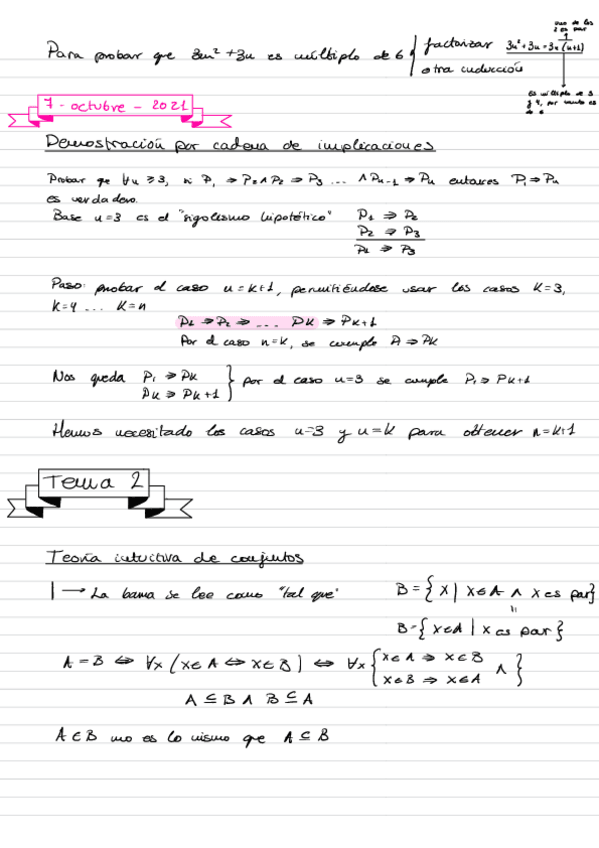 uno de los
2 es par
Para probar que 3n² + 3n es múltiplo de 6 { factorizar 3n² + 3n = 3n(n+1)
otra inducción
Es múltiplo de 3
de 6
7 - octubre - 2021
Demostración por cadena de implicaciones
Probar que ∀n ≥ 3, si P₁ ⇒ P₂ ∧ P₂ ⇒ P₃ ... ∧ Pn-1 ⇒ Pn entonces P₁ ⇒ Pn
es verdadero.
Base n=3 es el "sigolismo hipotético" P₁ ⇒ P₂
P₂ ⇒ P₃
P₁ ⇒ P₃
Paso: probar el caso n = k+1, permitiéndose usar los casos K=3,
K=4 ... K=n
P₁ ⇒ P₂ ⇒ ... Pk ⇒ Pk+1
Por el caso n=k, se cumple P₁ ⇒ Pk
Nos queda P₁ ⇒ Pk
Pk ⇒ Pk+1 } por el caso n=3 se cumple P₁ ⇒ Pk+1
Hemos necesitado los casos n=3 y n=k para obtener n=k+1
Tema 2
Teoría intuitiva de conjuntos
| → La barra se lee como "tal que" B = { X | X∈A ∧ X es par}
=
B = { X∈A | X es par}
A = B ⇔ ∀x (x∈A ⇔ x∈B) ⇔ ∀x { x∈A ⇒ x∈B ∧
x∈B ⇒ x∈A }
A ⊆ B ∧ B ⊆ A
A ∈ B no es lo mismo que A ⊆ B